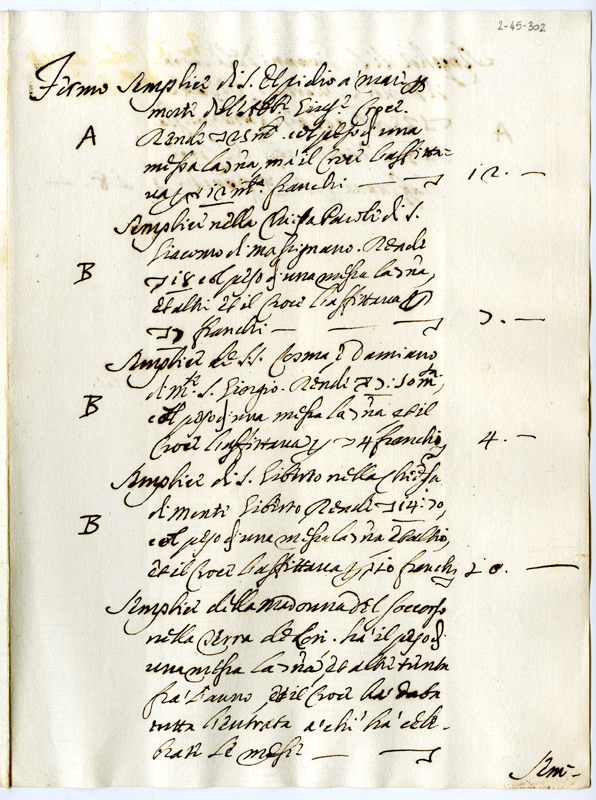 2-45-302
Fermo Semplice di S. Elpidio a' mare p
morte dell'Abb.e Gius.e Croce.
A
Rende 25 m.ta col peso d'una
messa la 7na, ma il Croce l'affitta=
va p 12 m.ta franchi — 12. —
Semplice nella Chiesa Parole di S.
Giacomo di Massignano. Rende
B
18 col peso d'una messa la 7na,
et altri et il Croce l'affittava p
7 franchi — 7. —
Semplice de SS. Cosma, e Damiano
di m.te S. Giorgio. Rende 7:50 m.ta,
B
col peso d'una messa la 7na et il
Croce l'affittava p 4 franchi 4. —
Semplice di S. Giberto nella Chiesa
di Monte Giberto Rende 14:70,
B
col peso d'una messa la 7na et altro,
et il Croce l'affittava p franchi —
Semplice della Madonna del Soccorso
nella Terra de Lori. ha' il peso d'
una messa la 7na et altre trenta
fra' l'anno et il Croce ha' data
tutta l'entrata a' chi ha' cele-
brate le messe —
Sem-